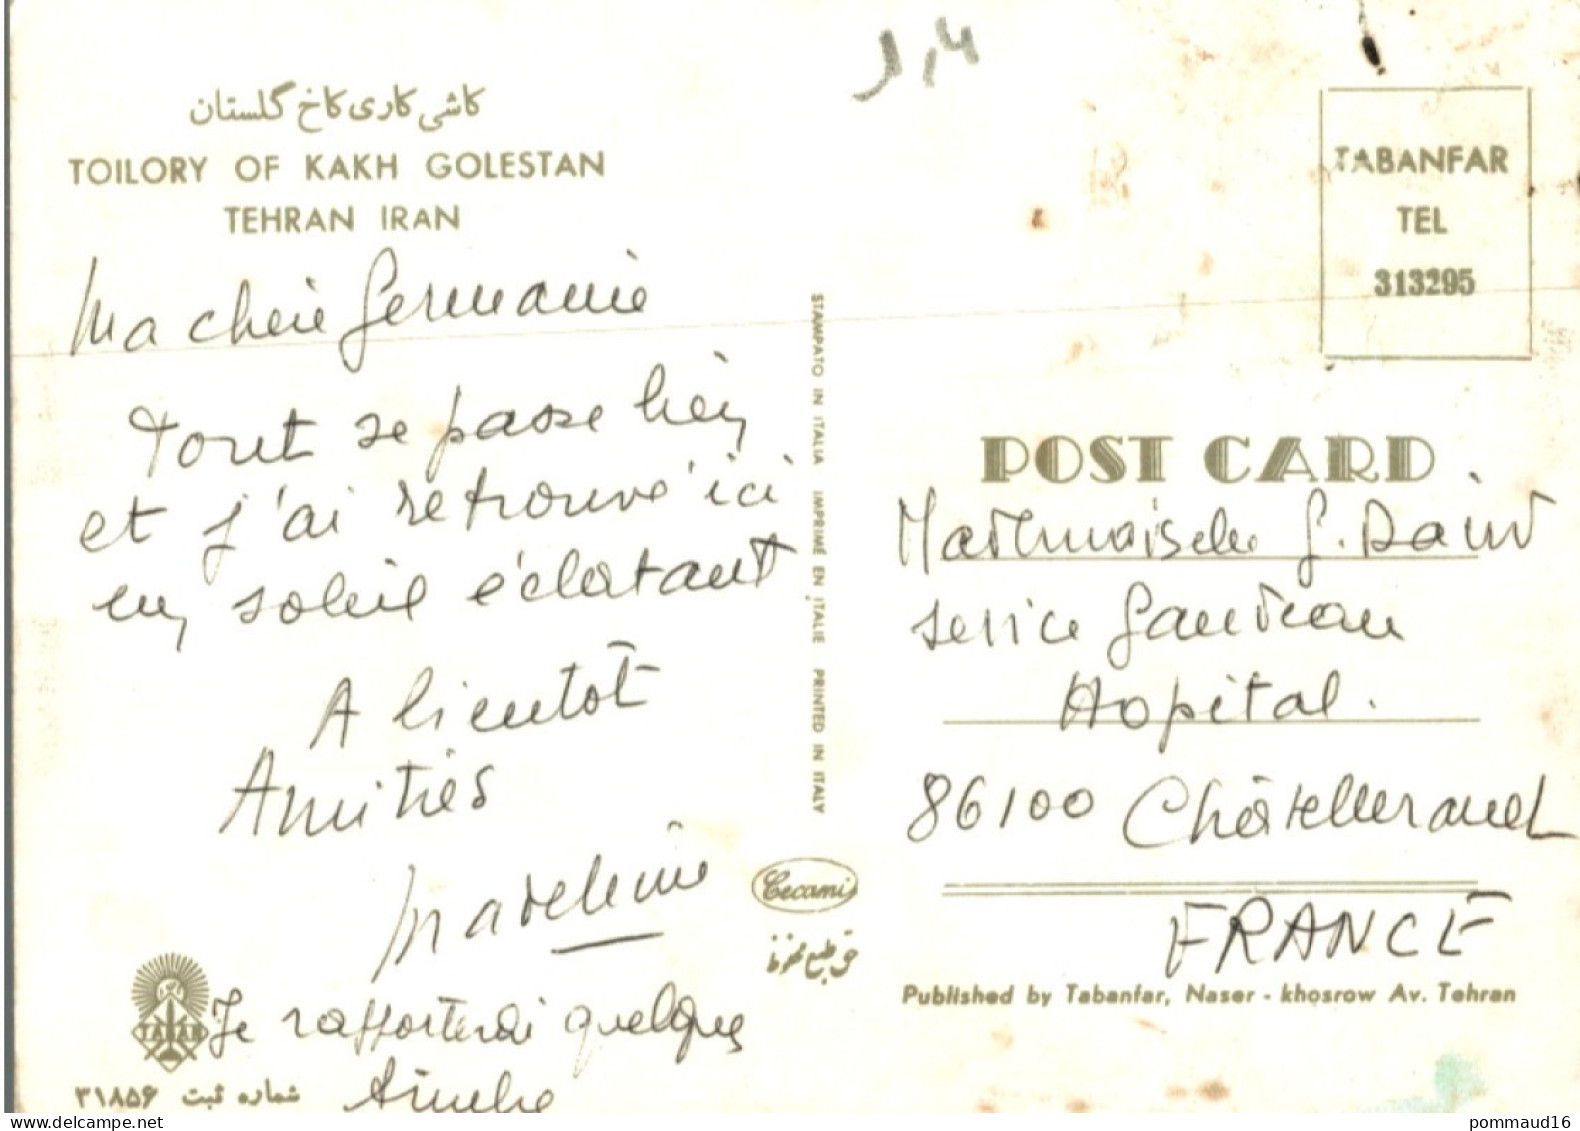 کاشی کاری کاخ گلستان
TOILORY OF KAKH GOLESTAN
TEHRAN IRAN
Ma chérie Germaine
Tout se passe bien
et j'ai retrouvé ici
un soleil éclatant
A bientôt
Amitiés
Madeleine
Je rapporterai quelques
TABAN
شماره ثبت ۳۱۸۵۶
STAMPATO IN ITALIA IMPRIMÉ EN ITALIE PRINTED IN ITALY
Cecami
حق طبع محفوظ
TABANFAR
TEL
313295
POST CARD
Mademoiselle G.
service Gaudeau
Hopital.
86100 Châtellerault
FRANCE
Published by Tabanfar, Naser - khosrow Av. Tehran
pommaud16